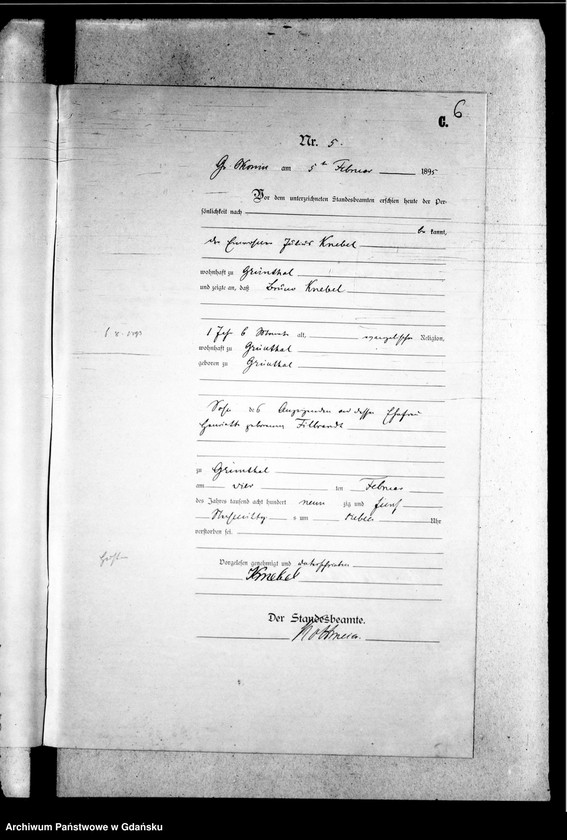 6
C.
Nr. 5.
am 5ten Februar 1895
Vor dem unterzeichneten Standesbeamten erschien heute, der Per-
sönlichkeit nach
be kannt,
der Einwohner Julius Knebel
wohnhaft zu Grünthal
und zeigte an, daß Bruno Knebel
1 Jahr 6 Monate alt, evangelischer Religion,
wohnhaft zu Grünthal
geboren zu Grünthal
Sohn des Anzeigenden und dessen Ehefrau
Henriette geborenen Fillbrandt
zu Grünthal
am vier ten Februar
des Jahres tausend acht hundert neun zig und fünf
Nachmittags um sieben Uhr
verstorben sei.
Vorgelesen, genehmigt und unterschrieben
Knebel
Der Standesbeamte.
Archiwum Państwowe w Gdańsku